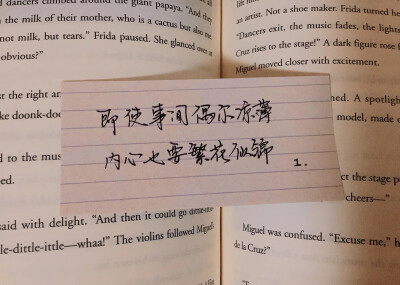 dancers climbed around the giant papaya. "And
the milk of their mother, who is a cactus but also
not milk, but tears." Frida paused. She glanced over
obvious?"
the right
to the mus
said with delight. "And then it could go
le-dittle-ittle—whaa!" The violins followed
即使事间偶尔凉薄
内心也要繁花似锦 1.
an artist. Not a shoe maker. Frida turned
"Dancers exit, the music fades, the lights
Cruz rises to the stage!" A dark figure rose
Miguel moved closer with excitement.
A spotlight
model, made
the stage
cheers—"
Miguel was confused. "Excuse me,"
de la Cruz?"